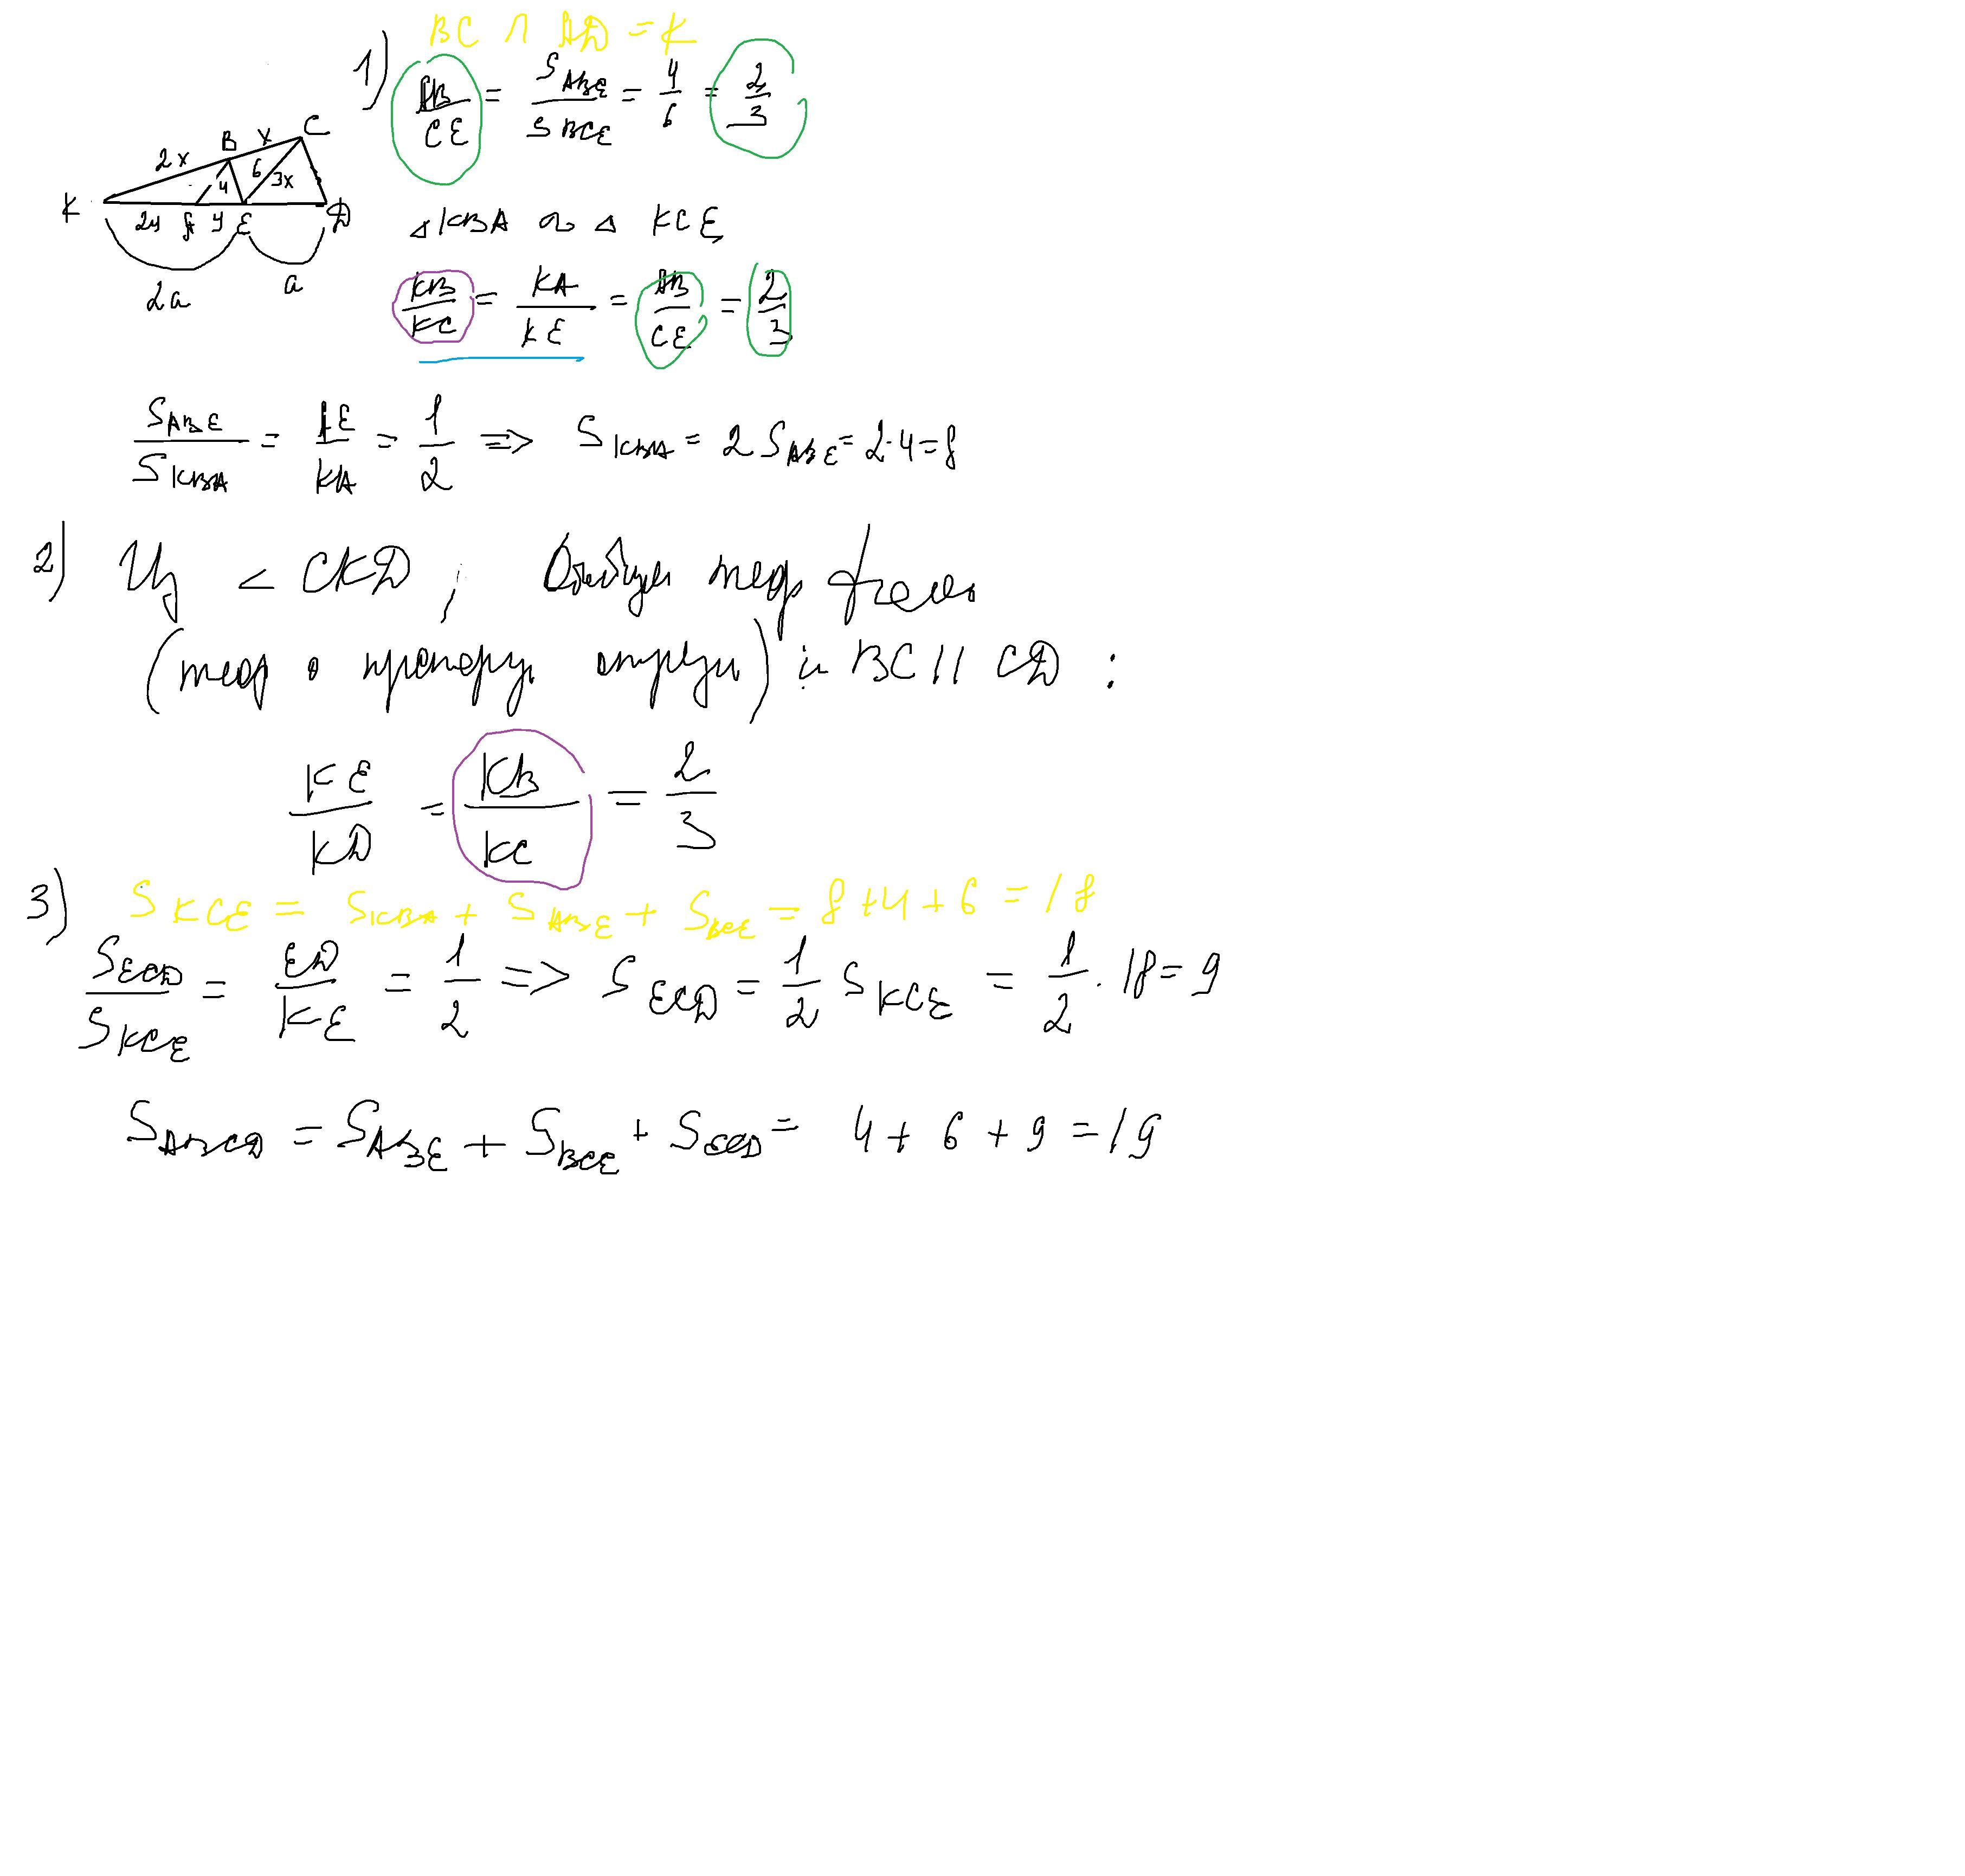 BC ∩ AD = K
1) AB/CE = S ABE / S BCE = 4/6 = 2/3
K 2x B x C 4 6 3x 2y A y E D 2a a
△KBA ~ △KCE
KB/KC = KA/KE = AB/CE = 2/3
S ABE / S KBA = AE/KA = 1/2 => S KBA = 2 S ABE = 2·4=8
2) Из < CKD ; теор Фалеса
(теор о пропорц отрезк) и BC || CD :
KE/KD = KB/KC = 2/3
3) S KCE = S KBA + S ABE + S BCE = 8+4+6=18
S ECD / S KCE = ED/KE = 1/2 => S ECD = 1/2 S KCE = 1/2 · 18=9
S ABCD = S ABE + S BCE + S ECD = 4+6+9=19